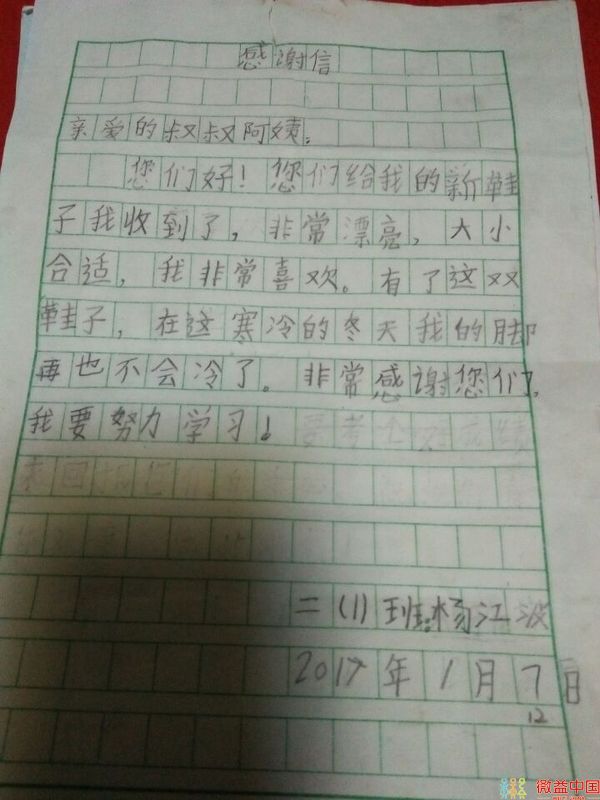 感谢信
亲爱的叔叔阿姨:
您们好!您们给我的新鞋
子我收到了,非常漂亮,大小
合适,我非常喜欢。有了这双
鞋子,在这寒冷的冬天我的脚
再也不会冷了。非常感谢您们,
我要努力学习!要考个好成绩
来回报
二(1)班:杨江波
2017年1月7日
12
微益中国